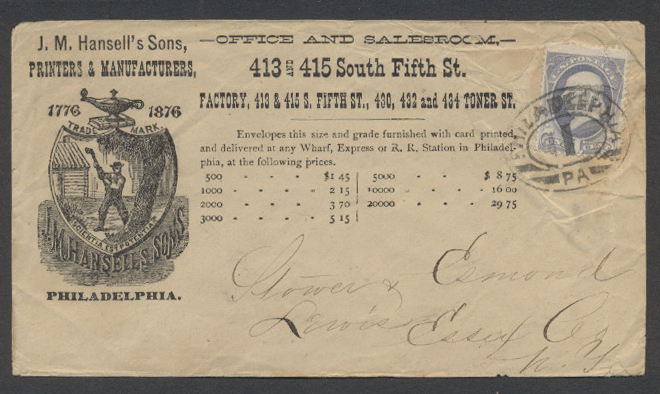 J. M. Hansell's Sons,
PRINTERS & MANUFACTURERS,
1776 1876
TRADE MARK.
SCIENTIA EST POTENTIA
J.M. HANSELL'S SONS
PHILADELPHIA.
—OFFICE AND SALESROOM,—
413 AND 415 South Fifth St.
FACTORY, 413 & 415 S. FIFTH ST., 430, 432 and 434 TONER ST.
Envelopes this size and grade furnished with card printed,
and delivered at any Wharf, Express or R. R. Station in Philadel-
phia, at the following prices.
500 - - - - $1 45
1000 - - - - 2 15
2000 - - - - 3 70
3000 - - - - 5 15
5000 - - - - $ 8 75
10000 - - - - 16 00
20000 - - - - 29 75
U.S. POSTAGE
PHILADELPHIA
PA
Stower & Esmond
Lewis Essex Co
N. Y.